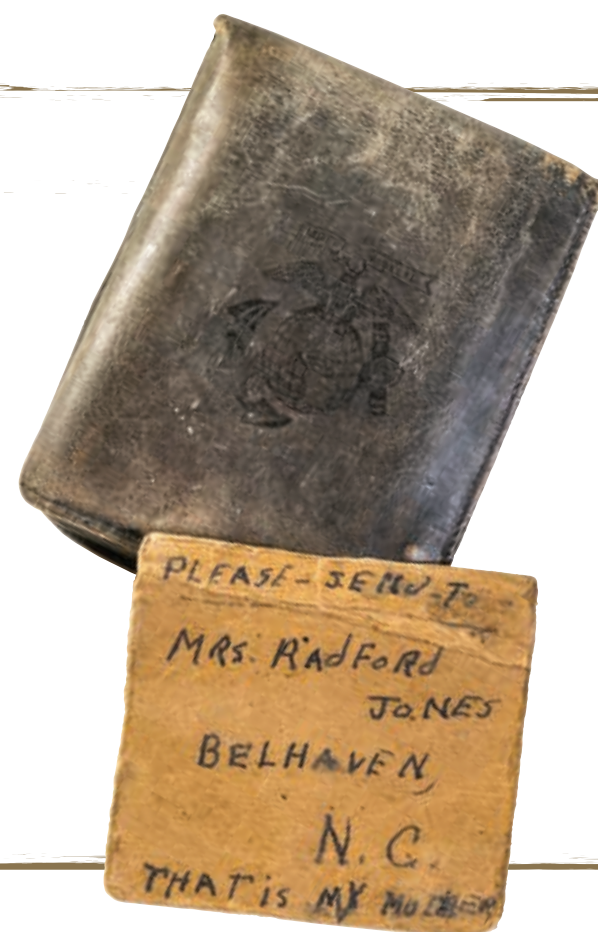 PLEASE - SEND - TO -
MRS. RADFORD
JONES
BELHAVEN,
N. C.
THAT is MY MOTHER